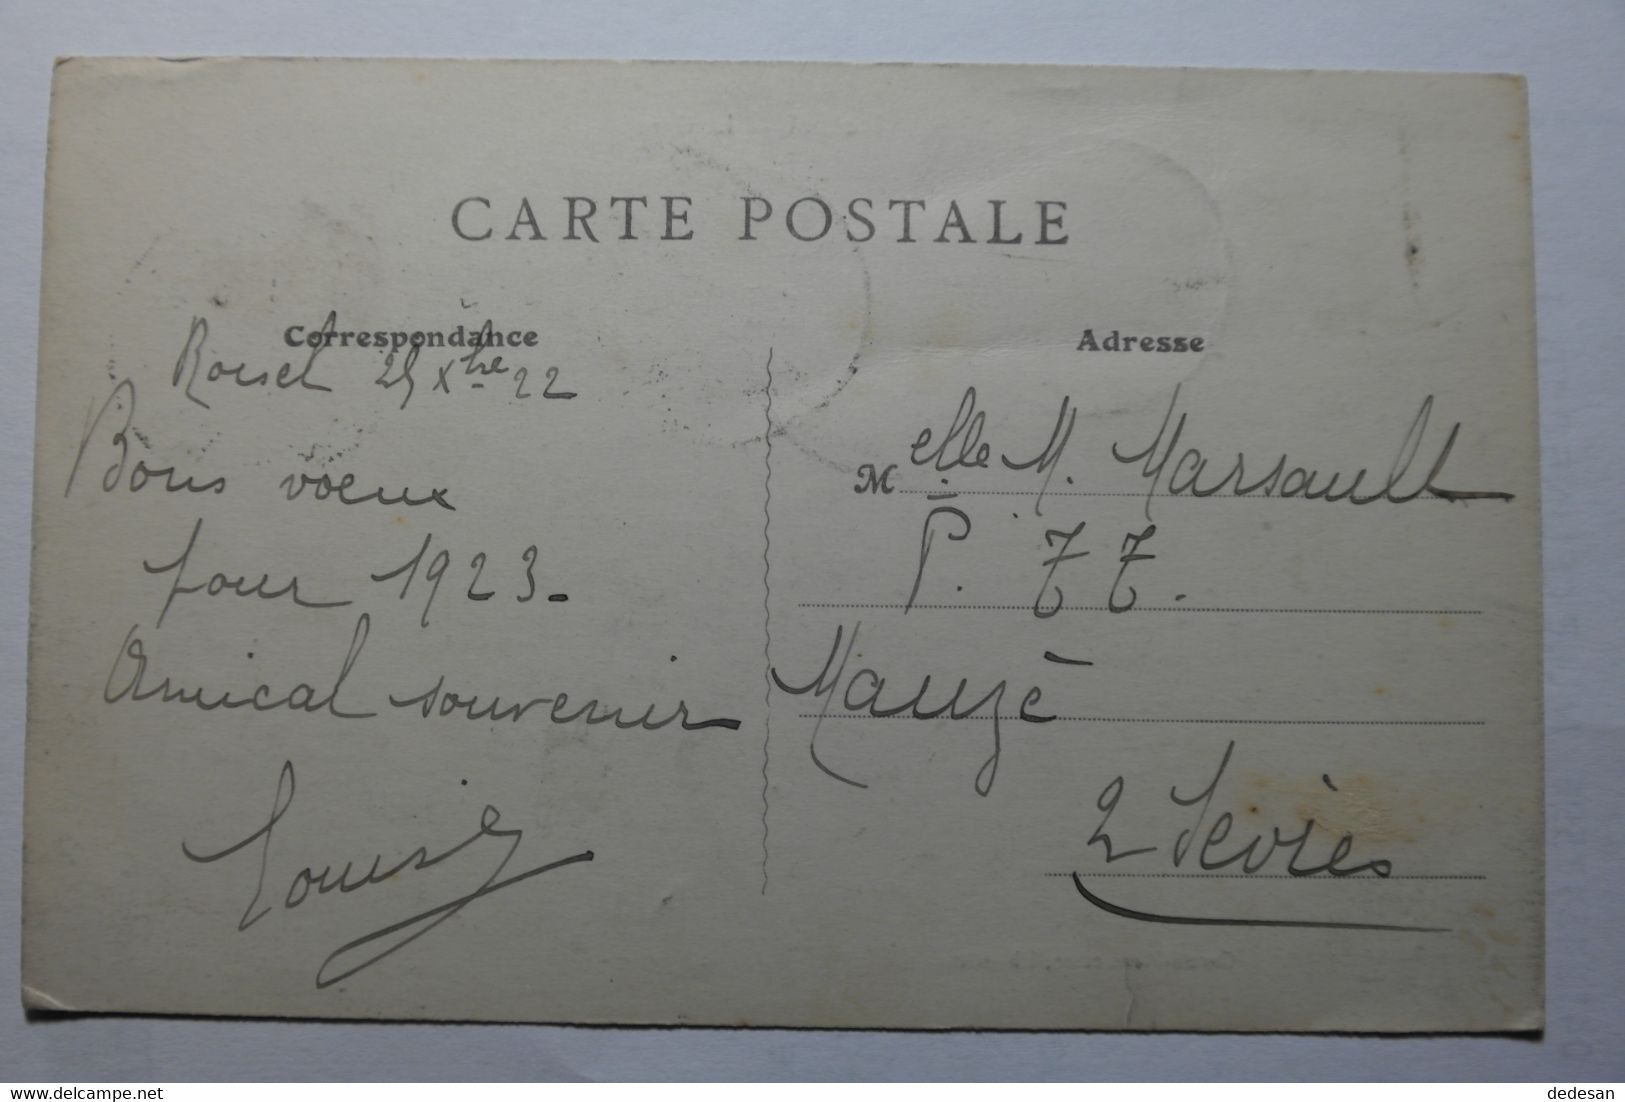 CARTE POSTALE
Correspondance
Roisel 25 Xbre 22
Bons voeux
pour 1923.
Amical souvenir
Adresse
Melle M. Marsault
P. T T.
Mauzé
2 Sèvres
dedesan